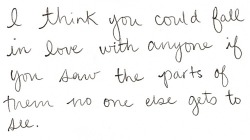 I think you could fall
in love with anyone if
you saw the parts of
them no one else gets to
see.